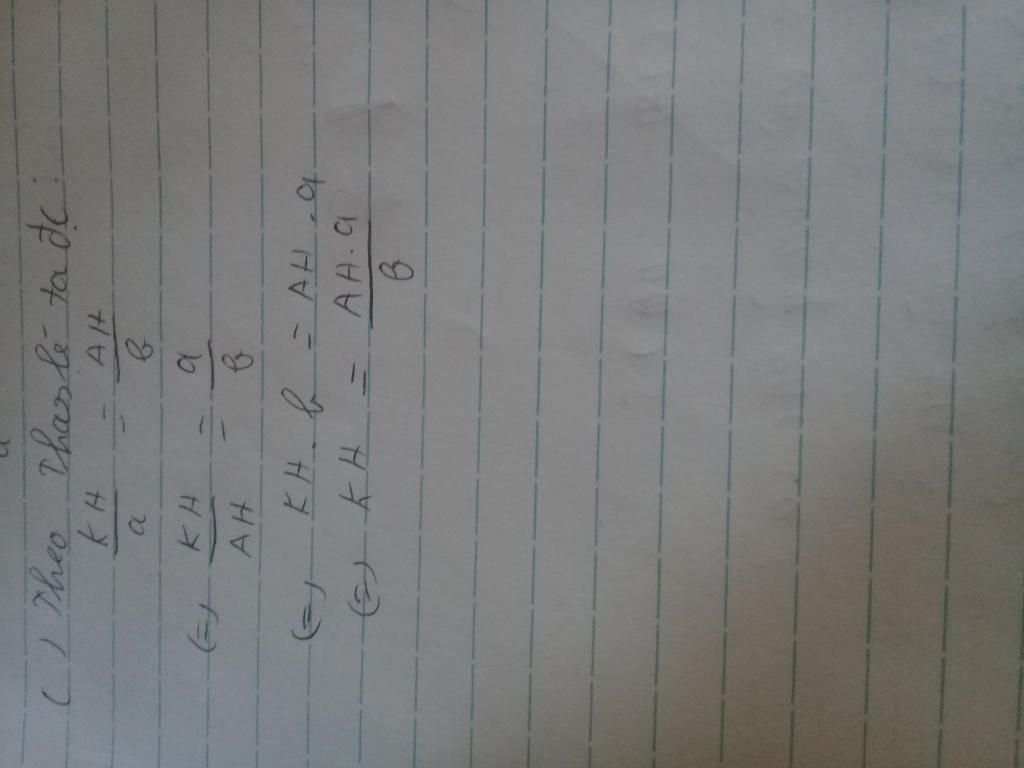 c) Theo Thaslé ta đc:
KH/a = AH/b
(=) KH/AH = a/b
(=) KH . b = AH . a
(=) KH = AH . a/b